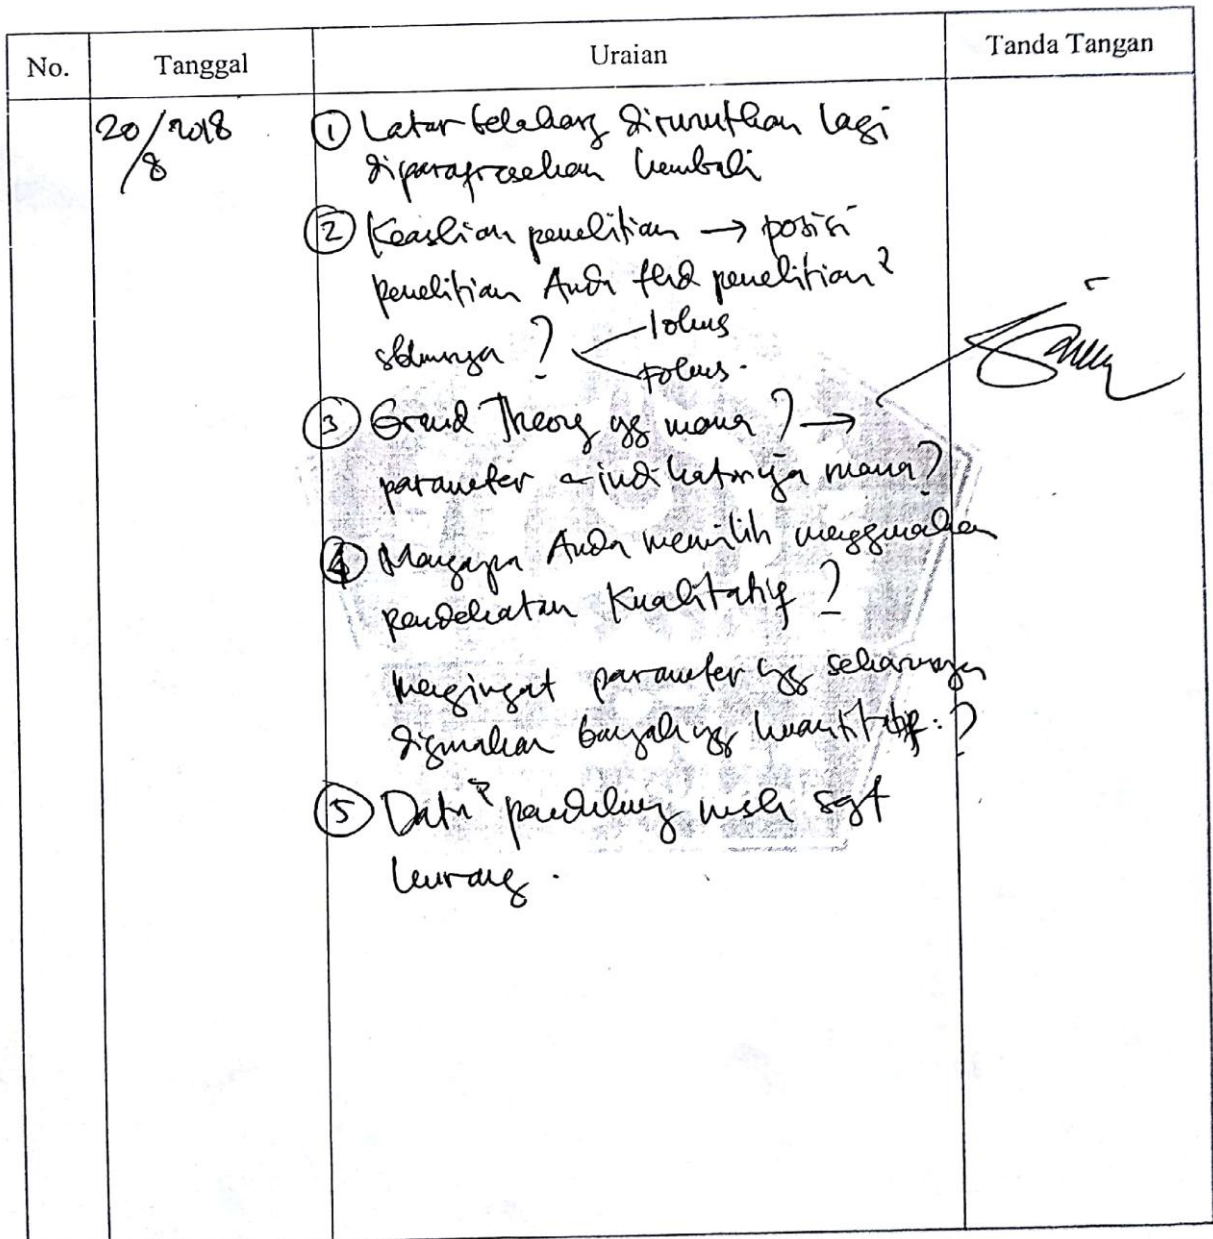 No. Tanggal Uraian Tanda Tangan
20/8 2018
① Latar belakang dirunutkan lagi
diparafrasekan kembali
② Keaslian penelitian → posisi
penelitian Anda thd penelitian²
sblmnya ? lokus
Fokus.
③ Grand Theory yg mana ? →
parameter & indikatornya mana ?
④ Mengapa Anda memilih menggunakan
pendekatan Kualitatif ?
mengingat parameter yg seharusnya
digunakan banyak yg kuantitatif. ?
⑤ Data² pendukung msh sgt
kurang.